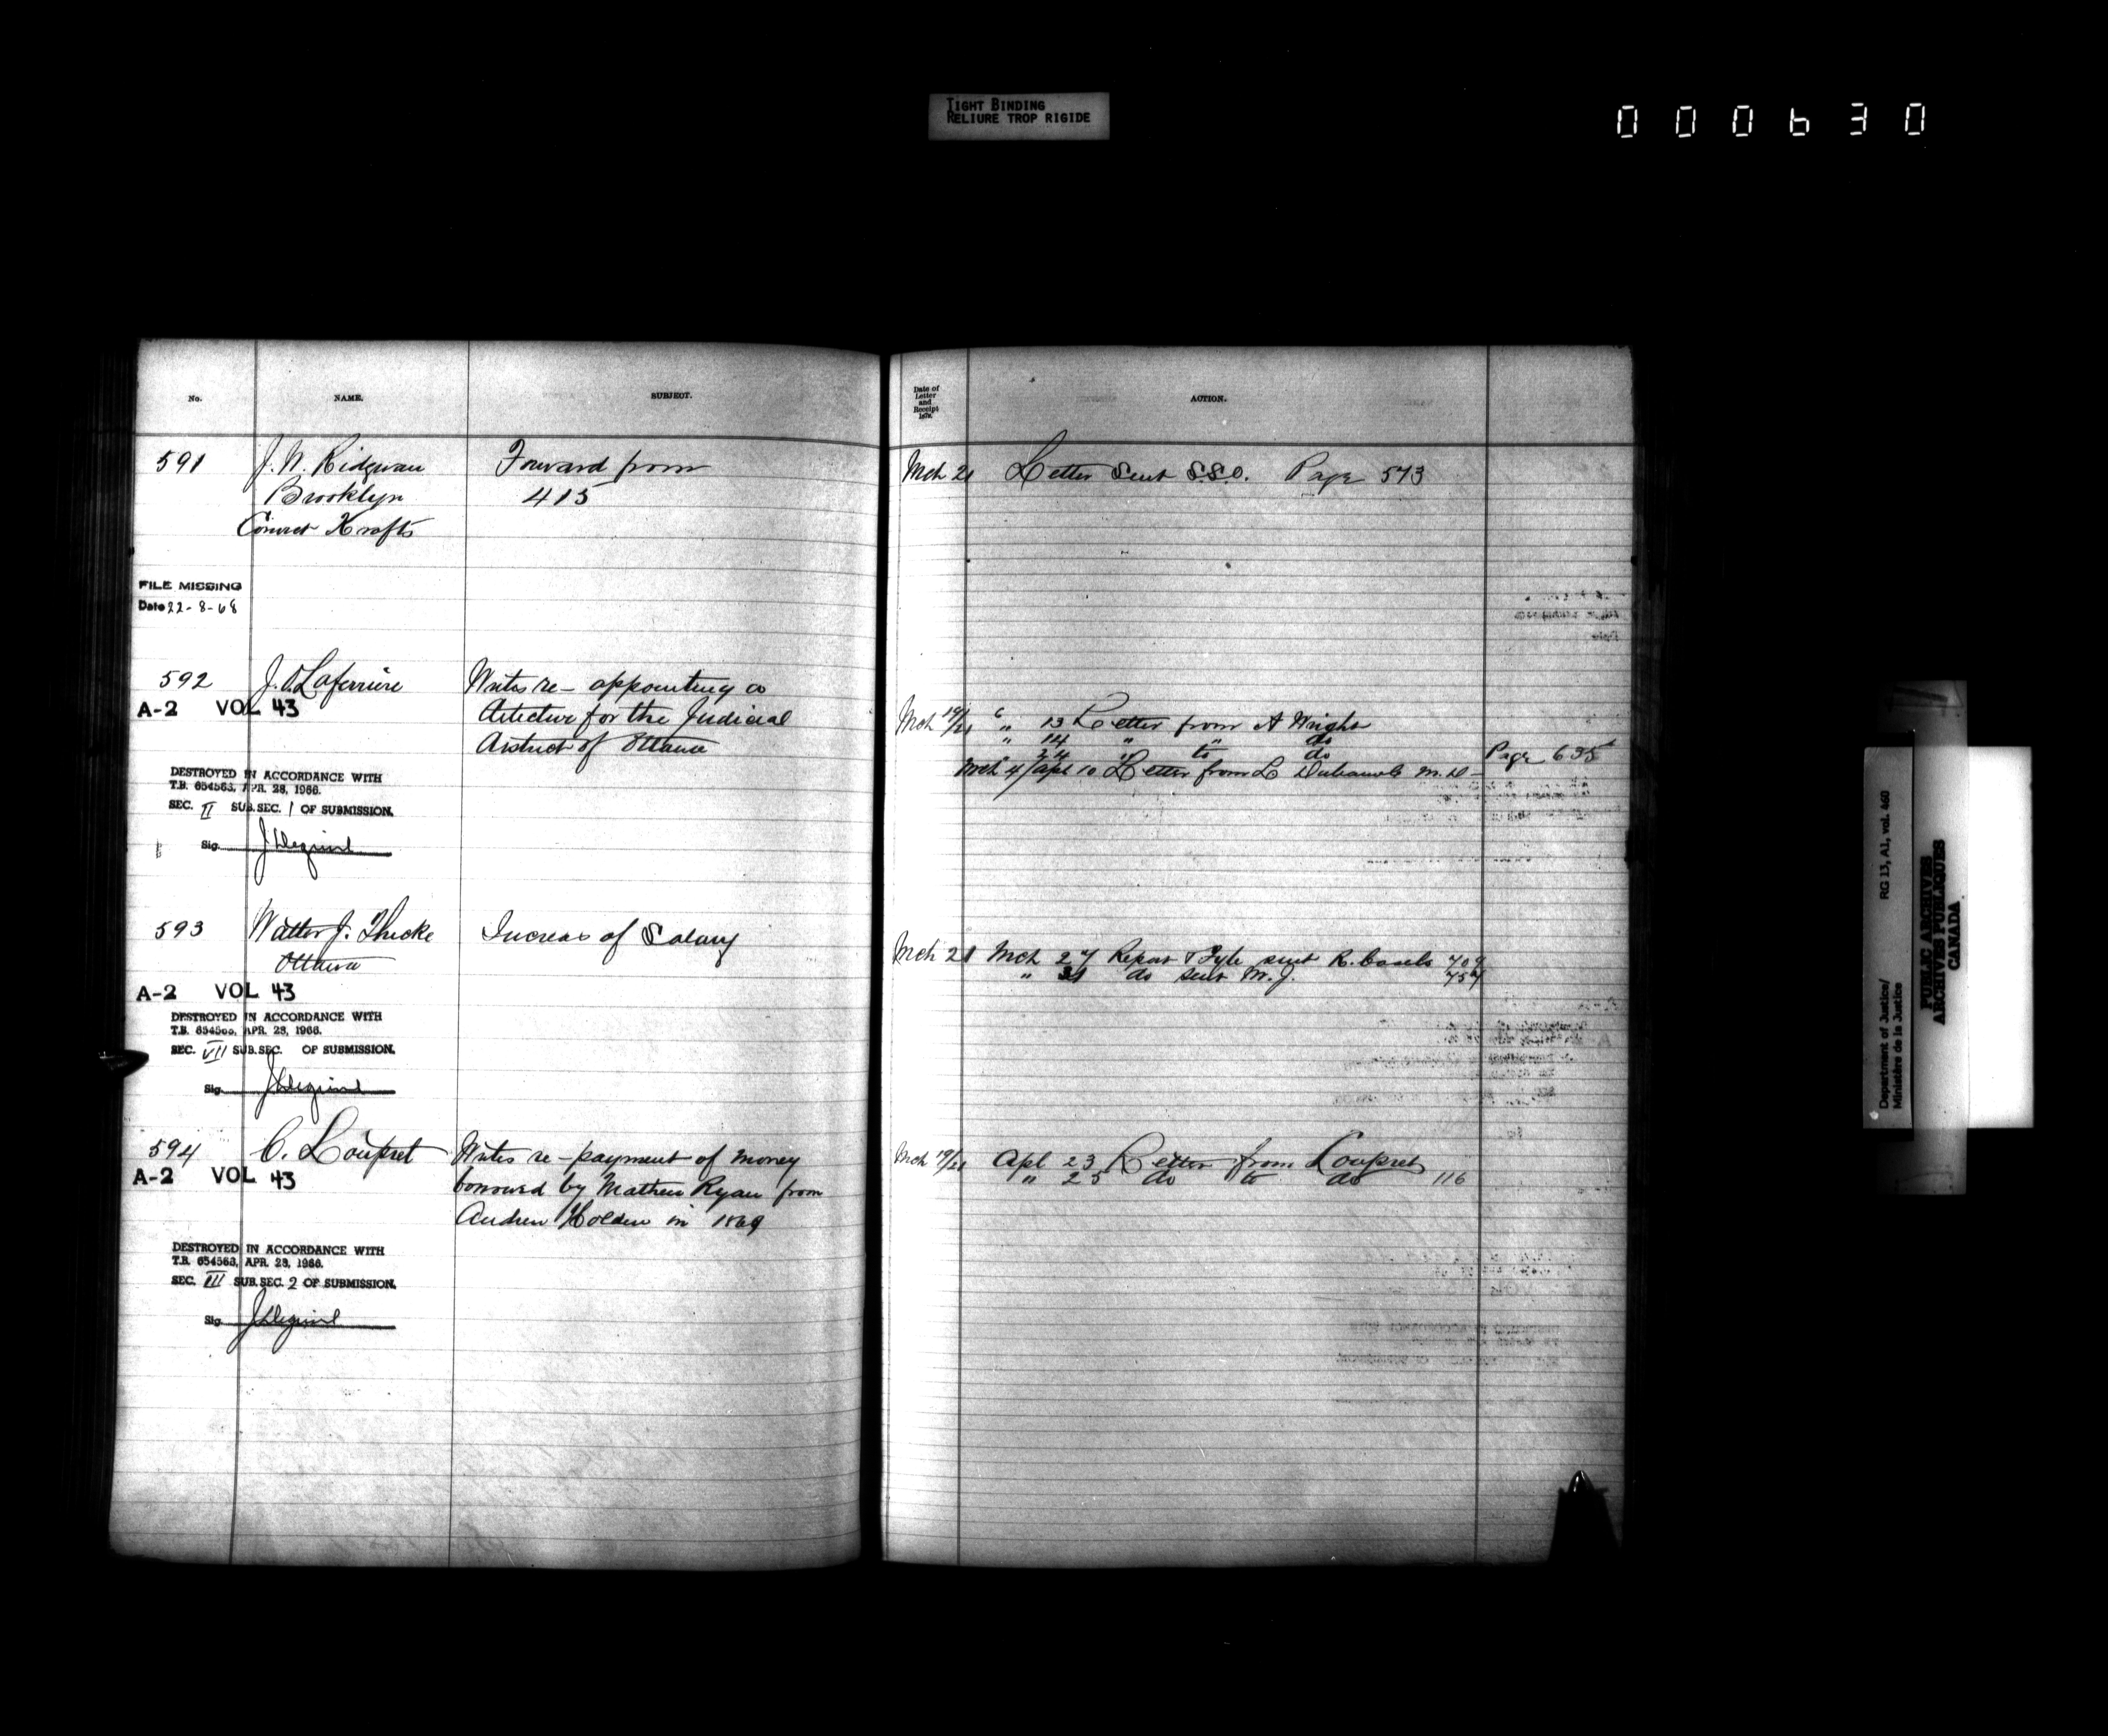 TIGHT BINDING
RELIURE TROP RIGIDE
000630
No. NAME. SUBJECT.
591 J. N. Ridgway Forward from
Brooklyn 415
Convict Krafts
FILE MISSING
Date 22-8-68
592 J. O. Laferriere Writes re- appointing a
A-2 VOL 43 detective for the Judicial
District of Ottawa
DESTROYED IN ACCORDANCE WITH
T.B. 654563, APR. 28, 1966.
SEC. II SUB.SEC. 1 OF SUBMISSION.
Sig.
593 Walter J. Thicke Increas of Salary
Ottawa
A-2 VOL 43
DESTROYED IN ACCORDANCE WITH
T.B. 654563, APR. 28, 1966.
SEC. VII SUB.SEC. OF SUBMISSION.
Sig.
594 C. Loupret Writes re- payment of money
A-2 VOL 43 borrowed by Mathew Ryan from
Andrew Holden in 1869
DESTROYED IN ACCORDANCE WITH
T.B. 654563, APR. 28, 1966.
SEC. III SUB.SEC. 2 OF SUBMISSION.
Sig.
Date of
Letter
and
Receipt
187
ACTION.
Mch 21 Letter Sent S.S.O. Page 573
Mch 19/21 " 13 Letter from A Wright
" 14 " " do
" 24 " to do Page 635
Mch 4/Apl 10 Letter from L M.D-
Mch 21 Mch 27 Report & Fyle sent R. Casels 709
" 31 do sent M. J. 757
Mch 19/21 Apl 23 Letter from Loupret
" 25 do to do 116
Department of Justice/ RG 13, A1, vol. 460
Ministère de la Justice
PUBLIC ARCHIVES
ARCHIVES PUBLIQUES
CANADA